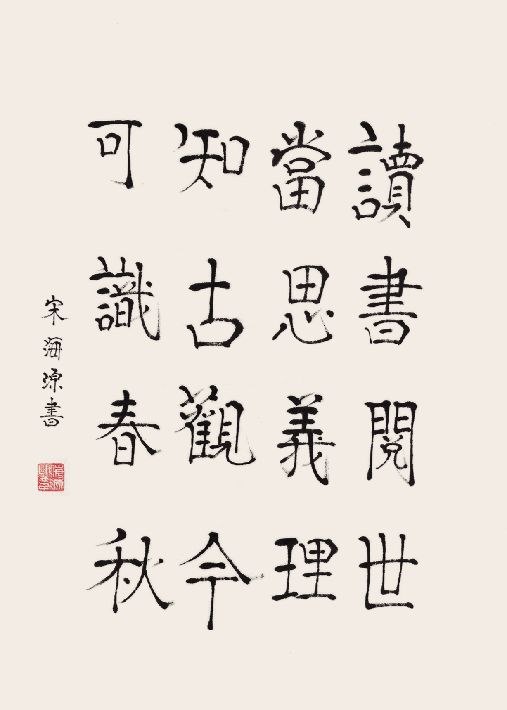 讀書閱世
當思義理
知古觀今
可識春秋
宋海源書